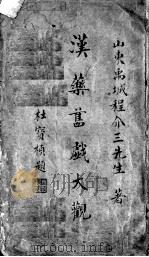 山東禹城程介三先生 著
漢藥舊戲大觀
杜寶楨題